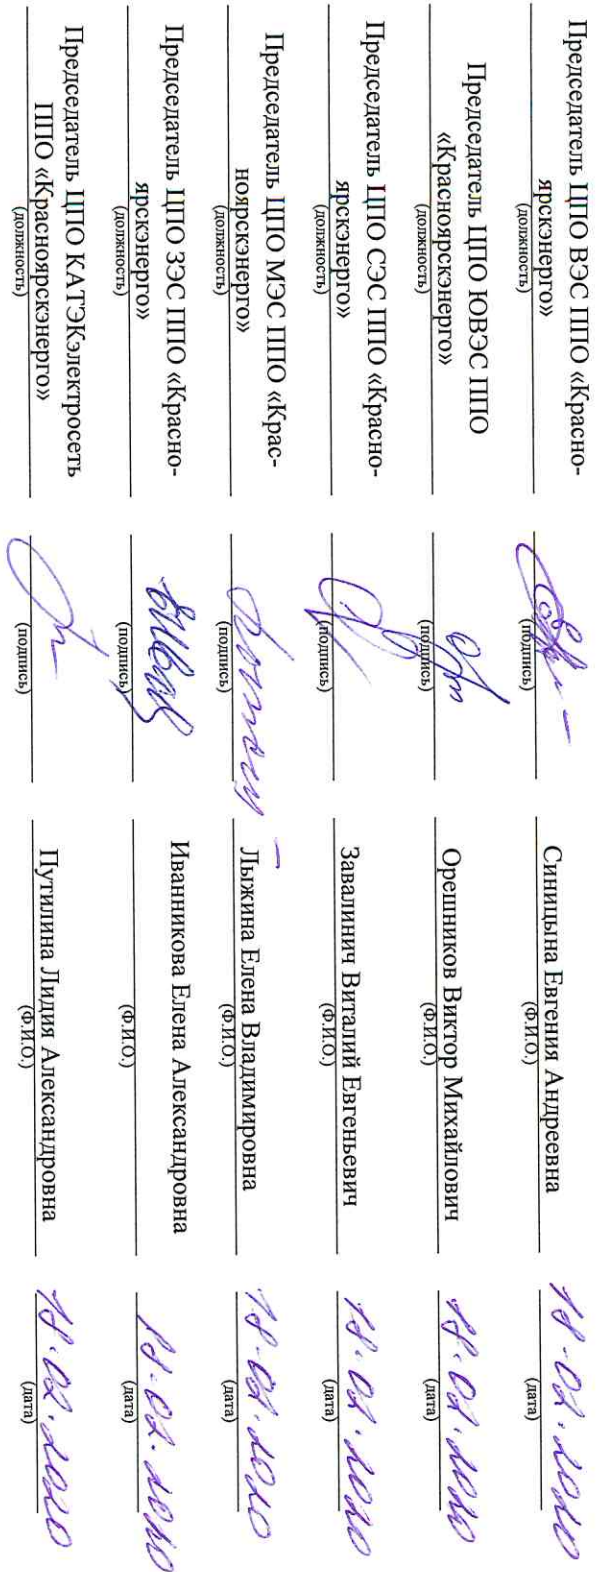 Председатель ЦПО ВЭС ППО «Красно-
ярскэнерго»
(должность)
(подпись)
Синицына Евгения Андреевна
(Ф.И.О.)
18.02.2020
(дата)
Председатель ЦПО ЮВЭС ППО
«Красноярскэнерго»
(должность)
(подпись)
Орешников Виктор Михайлович
(Ф.И.О.)
18.02.2020
(дата)
Председатель ЦПО СЭС ППО «Красно-
ярскэнерго»
(должность)
(подпись)
Завалинич Виталий Евгеньевич
(Ф.И.О.)
18.02.2020
(дата)
Председатель ЦПО МЭС ППО «Крас-
ноярскэнерго»
(должность)
(подпись)
Лыжина Елена Владимировна
(Ф.И.О.)
18.02.2020
(дата)
Председатель ЦПО ЗЭС ППО «Красно-
ярскэнерго»
(должность)
(подпись)
Иванникова Елена Александровна
(Ф.И.О.)
18.02.2020
(дата)
Председатель ЦПО КАТЭКэлектросеть
ППО «Красноярскэнерго»
(должность)
(подпись)
Путилина Лидия Александровна
(Ф.И.О.)
18.02.2020
(дата)